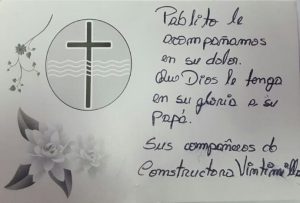 Pablito le
acompañamos
en su dolor.
Que Dios le tenga
en su gloria a su
Papá.
Sus compañeros de
Constructora Vintimilla